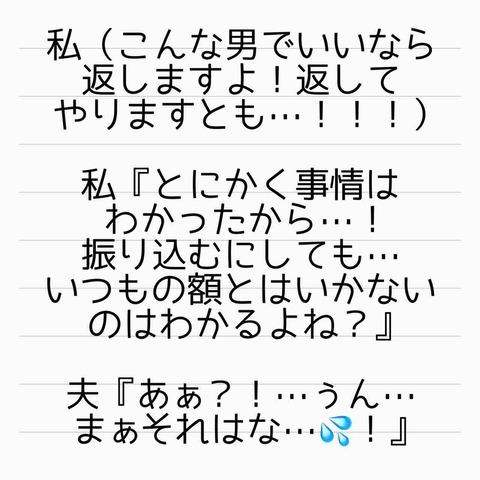 私（こんな男でいいなら
返しますよ！返して
やりますとも…！！！）
私『とにかく事情は
わかったから…！
振り込むにしても…
いつもの額とはいかない
のはわかるよね？』
夫『あぁ？！…ぅん…
まぁそれはな…💦！』